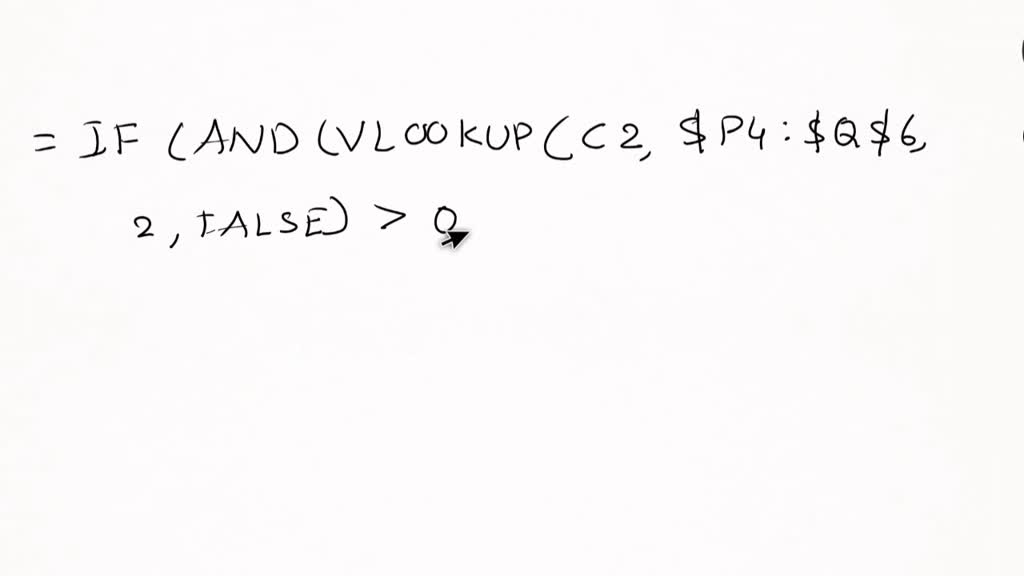 = IF (AND (VLOOKUP (C2, $P4:$Q$6,
2, FALSE) > 0